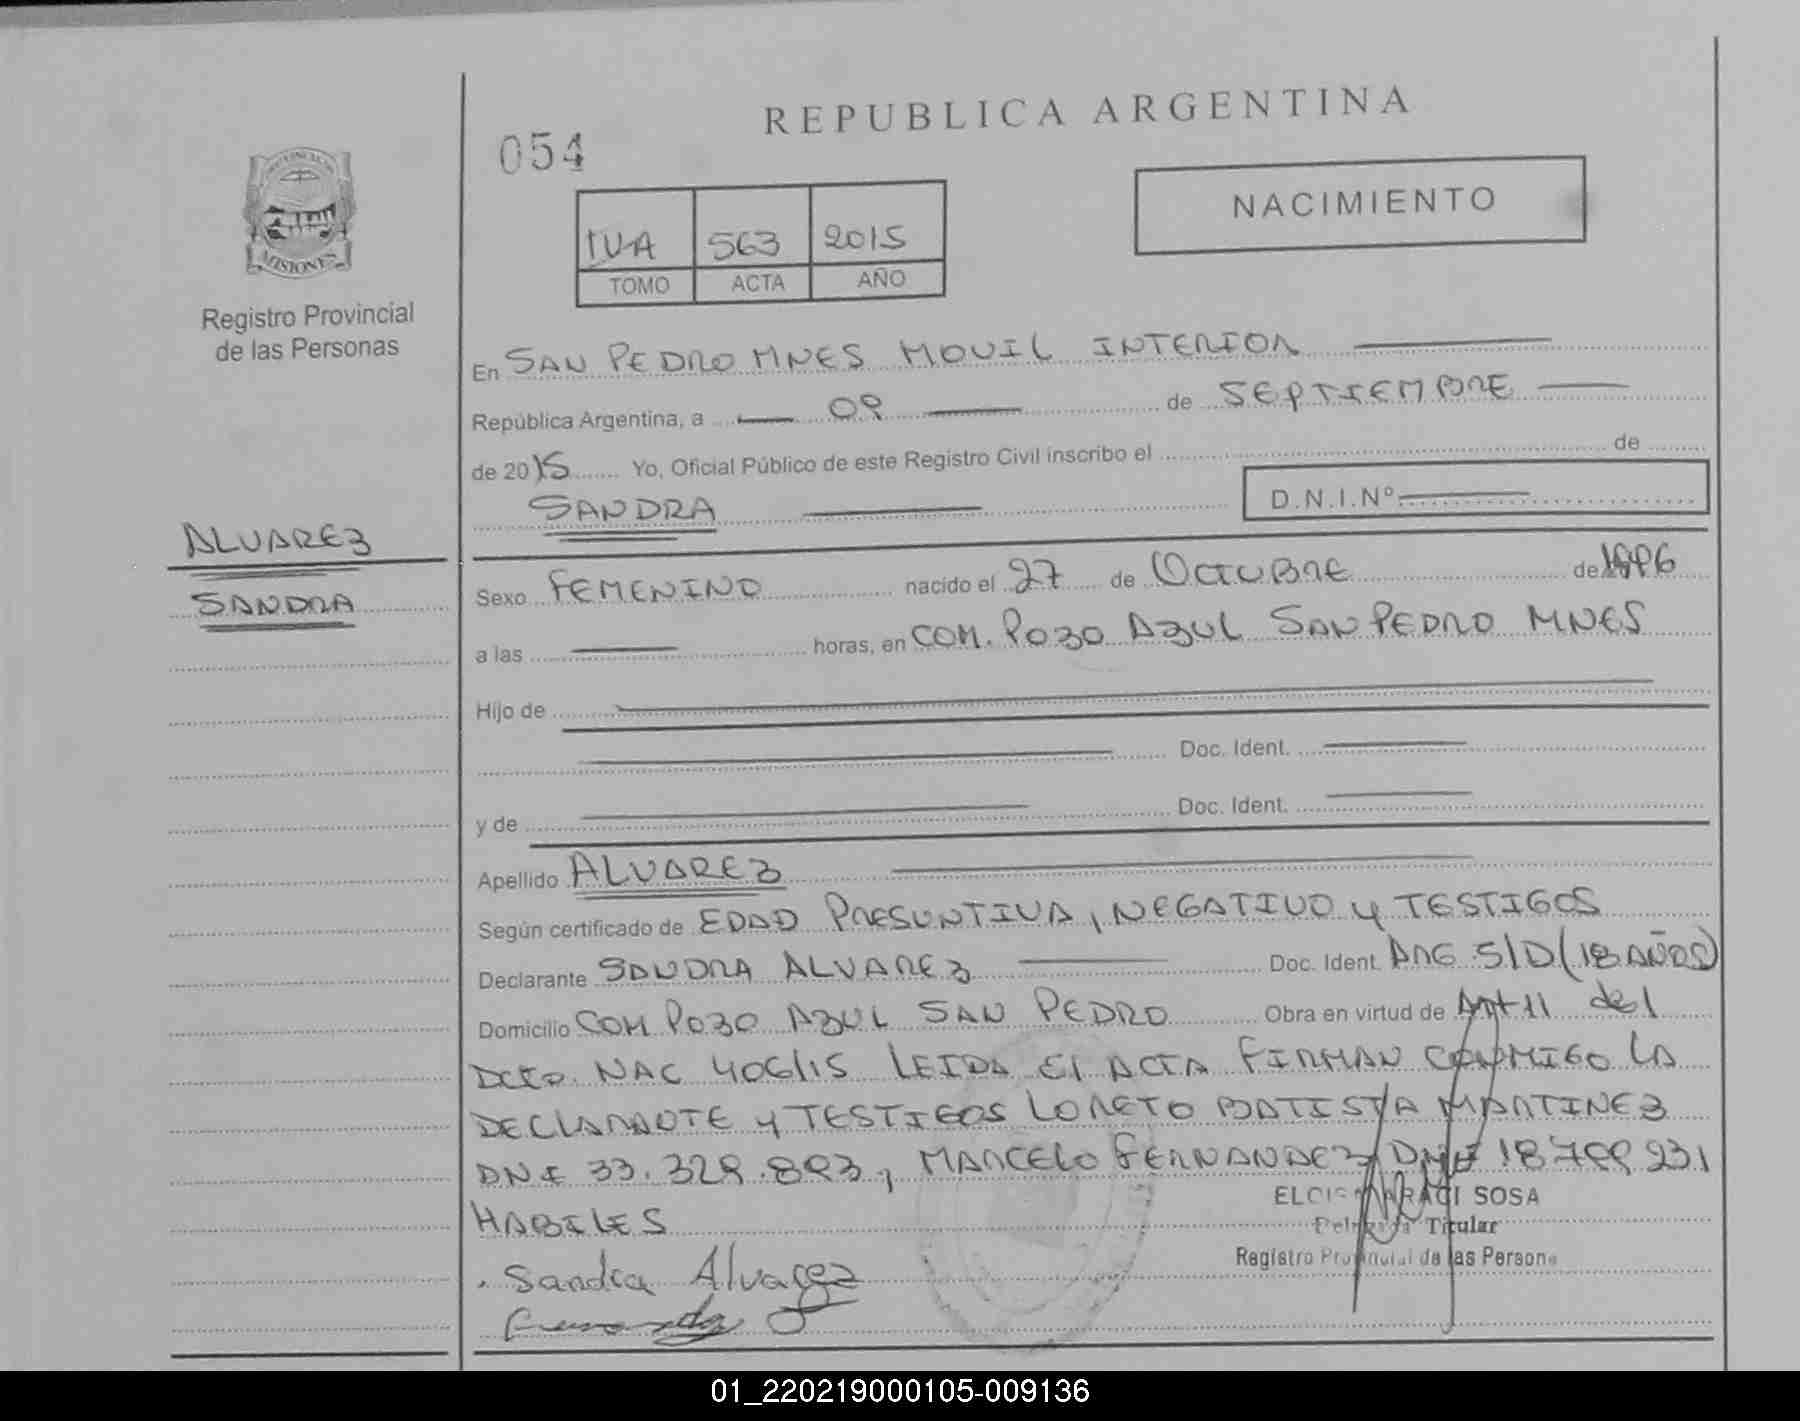 REPUBLICA ARGENTINA
054
NACIMIENTO
IVA 563 2015
TOMO ACTA AÑO
MISIONES
Registro Provincial
de las Personas
ALVAREZ
SANDRA
En SAN PEDRO MNES MOVIL INTERIOR
República Argentina, a 09 de SEPTIEMBRE
de 2015 Yo, Oficial Público de este Registro Civil inscribo el de
SANDRA D.N.I.Nº
Sexo FEMENINO nacido el 27 de OCTUBRE de 1996
a las horas, en COM. POZO AZUL SAN PEDRO MNES
Hijo de
Doc. Ident.
y de Doc. Ident.
Apellido ALVAREZ
Según certificado de EDAD PRESUNTIVA, NEGATIVO y TESTIGOS
Declarante SANDRA ALVAREZ Doc. Ident. ARG S/D (18 AÑOS)
Domicilio COM POZO AZUL SAN PEDRO Obra en virtud de Art 11 del
DCTO. NAC 406/15 LEIDA El ACTA FIRMAN CONMIGO LA
DECLARANTE y TESTIGOS LORETO BATISTA MARTINEZ
DNI 33.329.893, MARCELO FERNANDEZ DNI 18799231
HABILES
ARACI SOSA
Titular
Registro Provincial de las Persona
Sandra Alvarez
01_220219000105-009136